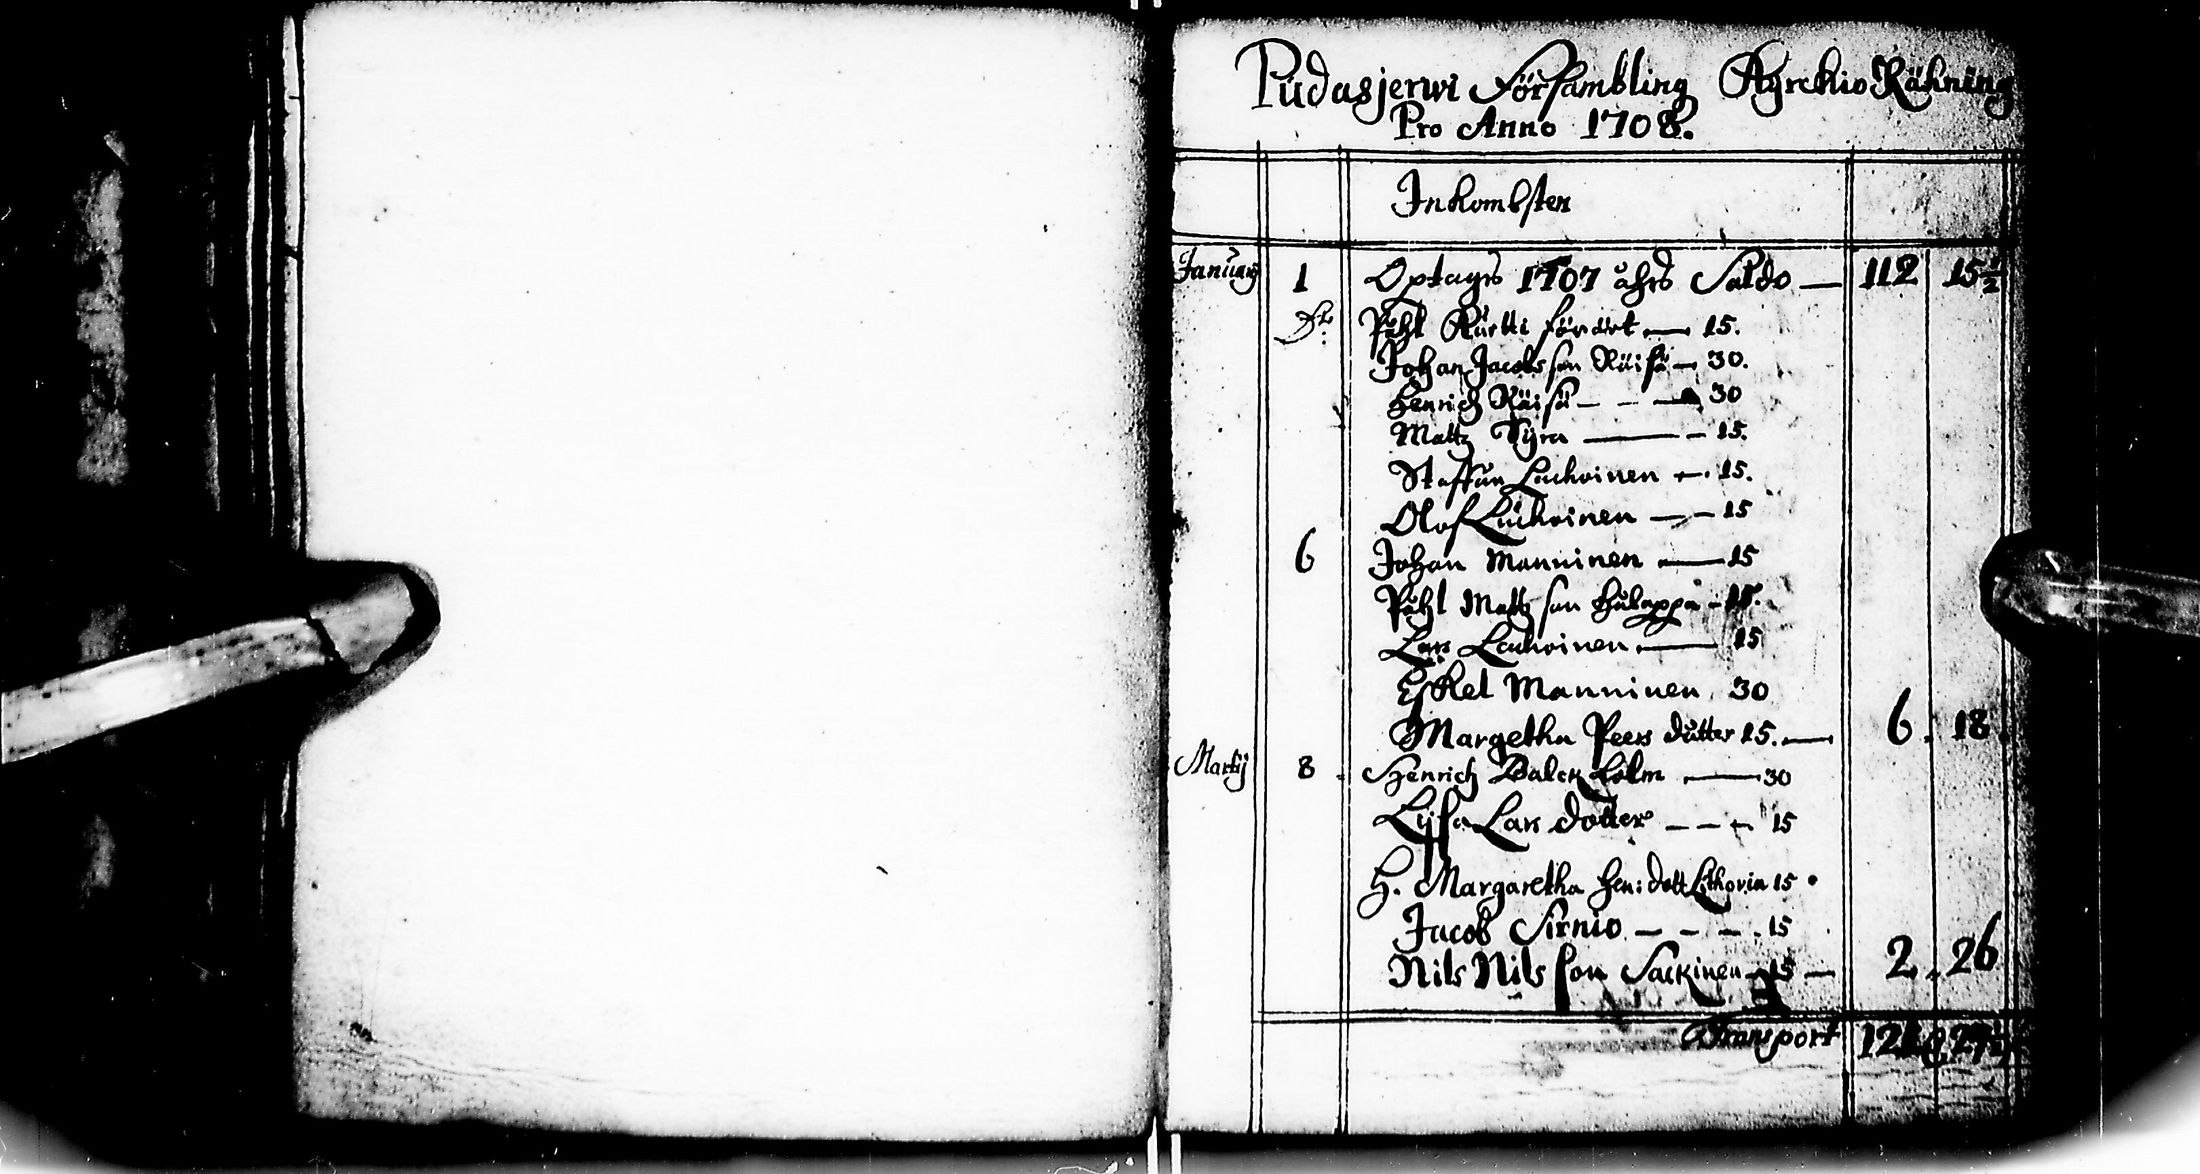 Pudasjerwi Försambling Kyrckio Rähning
Pro Anno 1708.
Inkombsten
January 1 Optages 1707 åhrs Saldo — 112 15½
Påhl Kurtti — 15.
Johan Jacobsson Räisä — 30.
Henrich Räisä — 30
Mattz Tyra — 15.
Staffan Lauhoinen — 15.
Olof Lauhoinen — 15
6 Johan Manninen — 15
Påhl Mattsson — 15.
Lars Lauhoinen — 15
Eskel Manninen 30
Margetha Peers dutter 15. — 6. 18
Martij 8 Henrich — 30
Lijsa Lars dotter — 15
H. Margaretha Hen: dott 15
Jacob Sirnio — 15
Nils Nilsson Sarkinen 15 — 2. 26
Transport